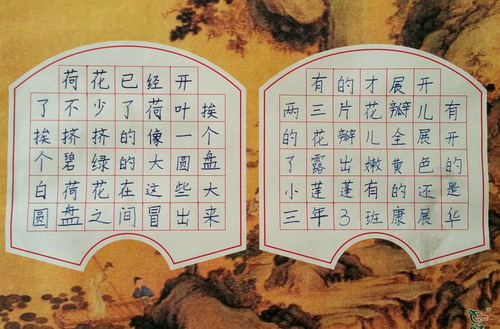 荷花已经开
了不少了荷叶挨
挨挤挤的像一个
个碧绿的大圆盘
白荷花在这些大
圆盘之间冒出来
有的才展开
两三片花瓣儿有
的花瓣儿全展开
了露出嫩黄色的
小莲蓬有的还是
三年3班康展华